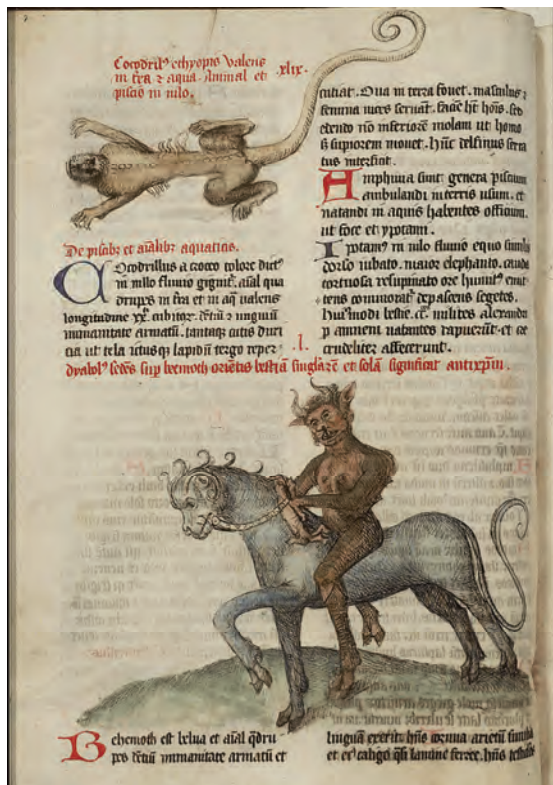 Cocodril' ethyopie valens
in tra ⁊ aqua. Animal et
piscis in nilo.
.xlix.
De piscibꝫ et aialibꝫ aquaticis.
Cocodrillus a croceo colore dict'
in nillo fluvio gignit. aial qua
drupes in tra et in aq valens
longitudine xx. cubitor. dentiu ⁊ unguiu
immanitate armatu. tantaqꝫ cutis duri
cia ut tela ictusqꝫ lapidu tergo reper
cutiat. Oua in terra fouet. masculus ⁊
femina uices seruat.
edendo no inferiore molam ut homo
superiorem mouet. hunc delfinus serra
tus interficit.
Amphiuia sunt genera piscium
ambulandi in terris usum. et
natandi in aquis habentes officium.
ut foce et ypotami.
Ipotam' in nilo fluuio equo similis
dorso iubato. maior elephanto. cauda
tortuosa resupinato ore
commorat depascens segetes.
Husmodi bestie .cc. milites alexandri
p amnem natantes rapuerut. et
crudeliter
.l.
dyabol' sedes sup beemoth orientis bestia singlare et sola significat antixpm.
Behemoth est belua et aial qdru
pes dentiu immanitate armatu et
lingua exerit. hns cornua arietu
et